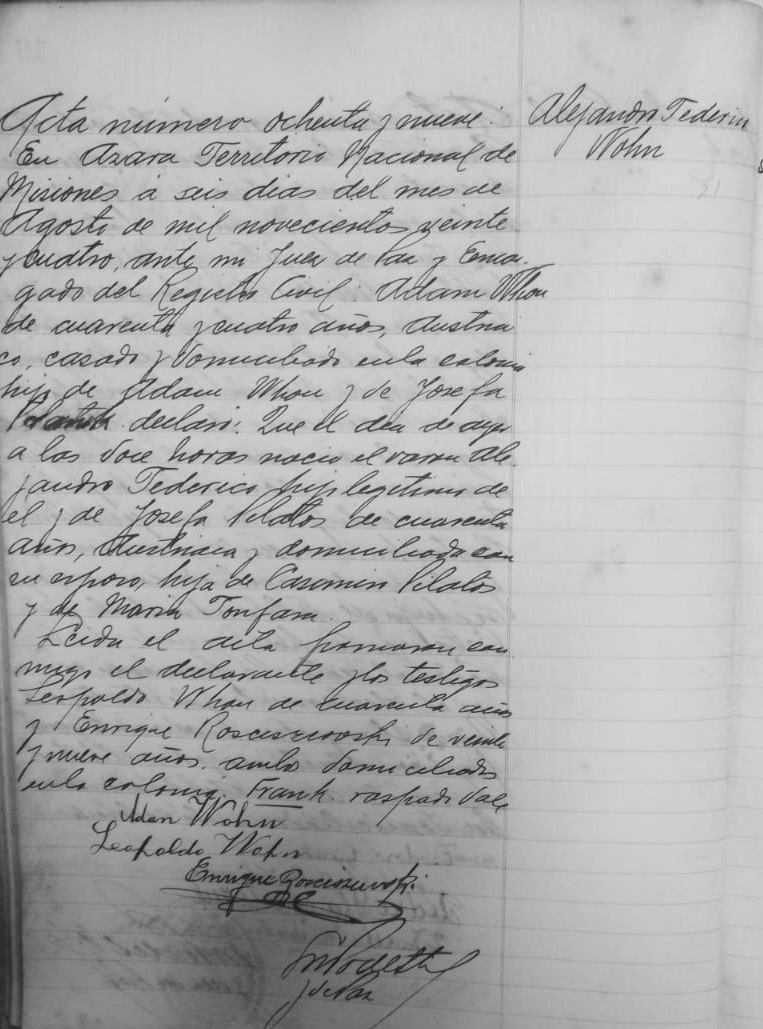 Acta número ochenta y nueve:
Alejandro Federico
Wohn
En Azara Territorio Nacional de
Misiones á seis dias del mes de
Agosto de mil novecientos veinte
y cuatro, ante mi Juez de Paz y Encar-
gado del Registro Civil: Adam Whon
de cuarenta y cuatro años, Austria
co, casado y domiciliado en la colonia
hijo de Adam Whon y de Josefa
declaró: Que el dia de ayer
a las doce horas nació el varon Ale-
jandro Federico hijo legitimo de
el y de Josefa Pilatos de cuarenta
años, Austriaca y domiciliada con
su esposo, hija de Casemiro Pilatos
y de Maria
Leida el acta firmaron con
migo el declarante y los testigos
Leopoldo Whon de cuarenta años
y Enrique Rosciszewski de veinte
y nueve años, ambos domiciliados
en la colonia. Frank. raspado Vale
Adan Wohn
Leopoldo Wohn
Enrique Rosciszewski
J de Paz